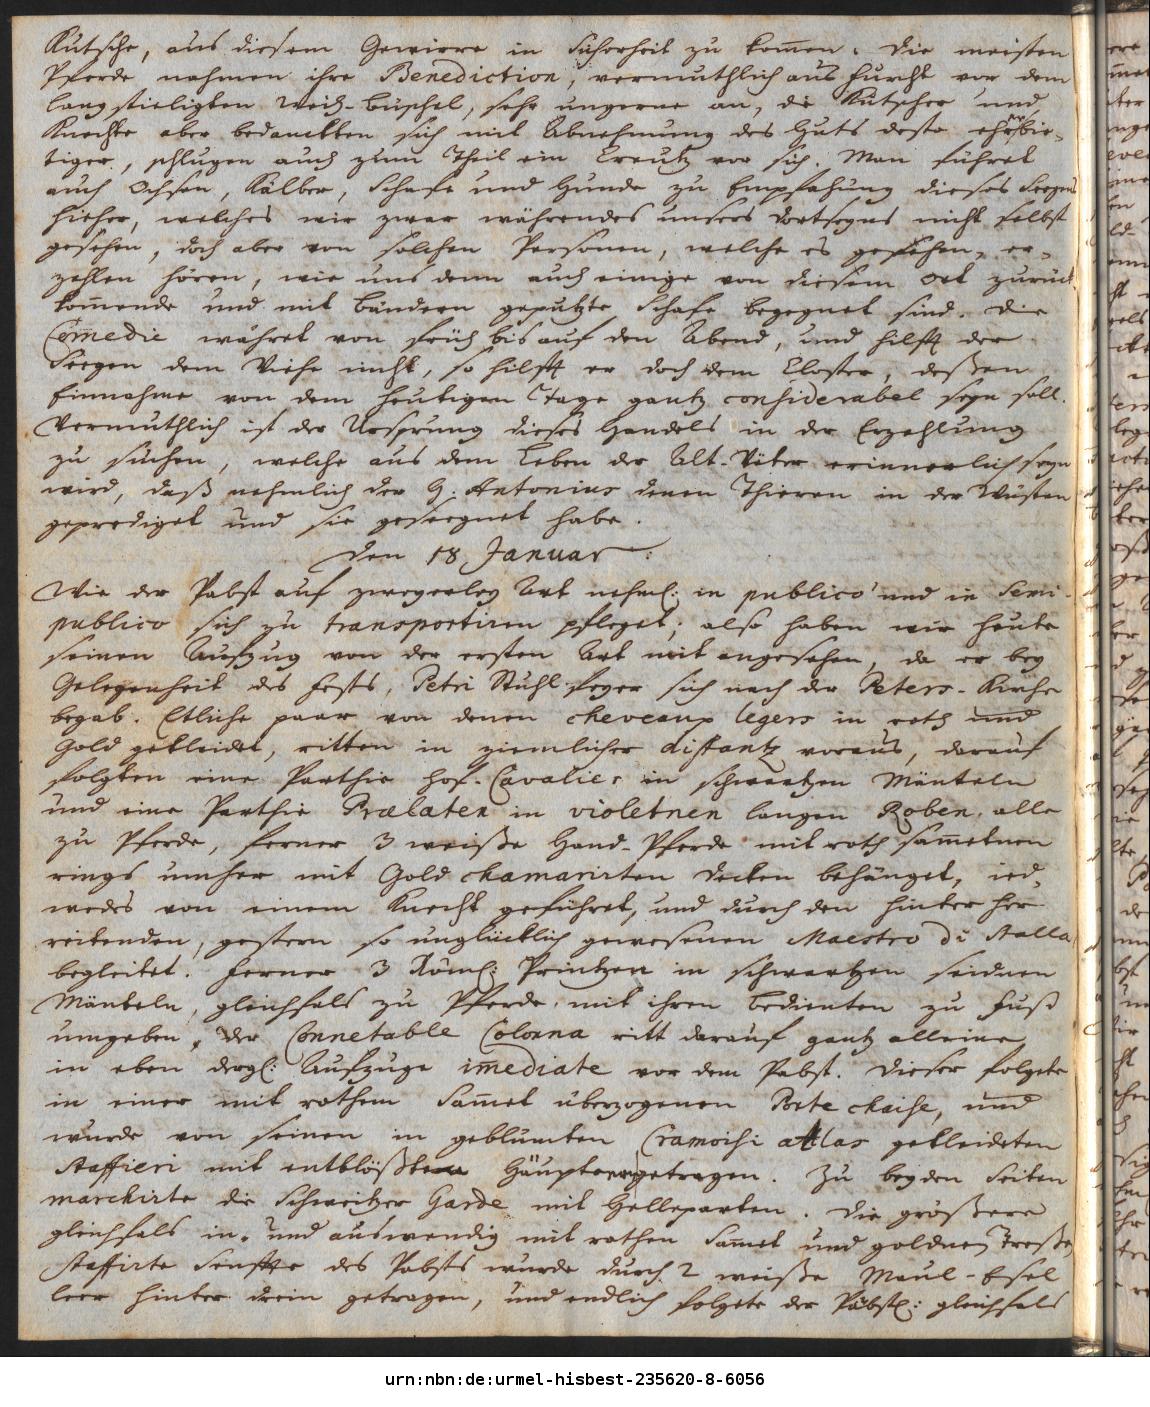 Kutsche, aus diesem Gewirre in Sicherheit zu kom̄en. Die meisten
Pferde nahmen ihre Benediction, vermuthlich aus Furcht vor dem
langstieligten Weih-büschel, sehr ungerne an, die Kutscher und
Knechte aber bedanckten sich mit Abnehmung des Huts desto ehrerbie-
tiger, schlugen auch zum Theil ein Creutz vor sich. Man führet
auch Ochsen, Kälber, Schafe und Hunde zu Empfahung dieses Seegens
hieher, welches wir zwar währendes unsers dortseyns nicht selbst
gesehen, doch aber von solchen Personen, welche es gesehen, er-
zehlen hören, wie uns denn auch einige von diesem Ort zurück
kom̄ende und mit bändern geputzte Schafe begegnet sind. Die
Com̄edie währet von früh bis auf den Abend, und hilfft der
Seegen dem Viehe nicht, so hilfft er doch dem Closter, deßen
Einnahme von dem heutigen Tage gantz considerabel seyn soll.
Vermuthlich ist der Ursprung dieses Handels in der Erzehlung
zu suchen, welche aus dem Leben der Alt-Väter erinnerlich seyn
wird, daß nehmlich der H. Antonius denen Thieren in der Wüsten
geprediget und sie geseegnet habe.
Den 18 Januar:
Wie der Pabst auf zweyerley Art nehml: in publico und in Semi-
publico sich zu transportiren pfleget; also haben wir heute
seinen Aufzug von der ersten Art mit angesehen, da er bey
Gelegenheit des Fests, Petri Stuhl-feyer sich nach der Peters-Kirche
begab. Etliche paar von denen cheveaux legers in roth und
Gold gekleidet, ritten in ziemlicher distantz voraus, darauf
folgten eine Parthie Hof-Cavalier in schwartzen Mänteln
und eine Parthie Prælaten in violetnen langen Roben, alle
zu Pferde, ferner 3 weiße Hand-Pferde mit roth sam̄etnen
rings umher mit Gold chamarirten Decken behänget, ied-
wedes von einem Knecht geführet, und durch den hinter her
reitenden, gestern so unglücklich gewesenen Maestro di Stalla
begleitet. Ferner 3 Röml: Printzen in schwartzen seidnen
Mänteln, gleichfals zu Pferde, mit ihren bedienten zu Fuß
umgeben, der Connetable Colonna ritt darauf gantz alleine,
in eben dergl: Aufzuge im̄ediate vor dem Pabst. Dieser folgete
in einer mit rothem Sam̄et überzogenen Porte chaise, und
wurde von seinen in geblümten Cramoisi atlas gekleideten
Staffieri mit entblößten Häuptern getragen. Zu beyden Seiten
marchirte die Schweitzer Garde mit Helleparten. Die größere
gleichfals in- und auswendig mit rothen Sam̄et und goldnen Treßen
staffirte Senffte des Pabsts wurde durch 2 weiße Maul-Esel
leer hinter drein getragen, und endlich folgete der Päbstl: gleichfals